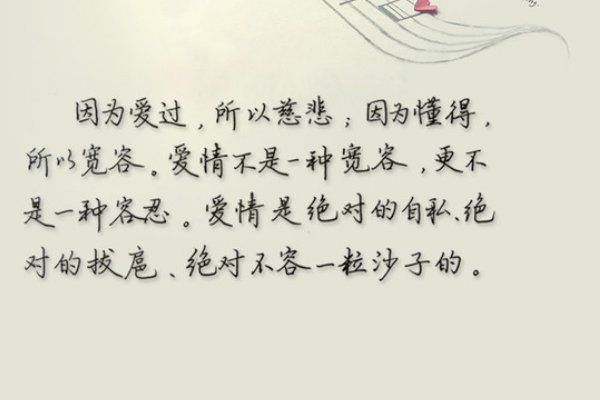 因为爱过，所以慈悲；因为懂得，
所以宽容。爱情不是一种宽容，更不
是一种容忍。爱情是绝对的自私、绝
对的拔扈、绝对不容一粒沙子的。